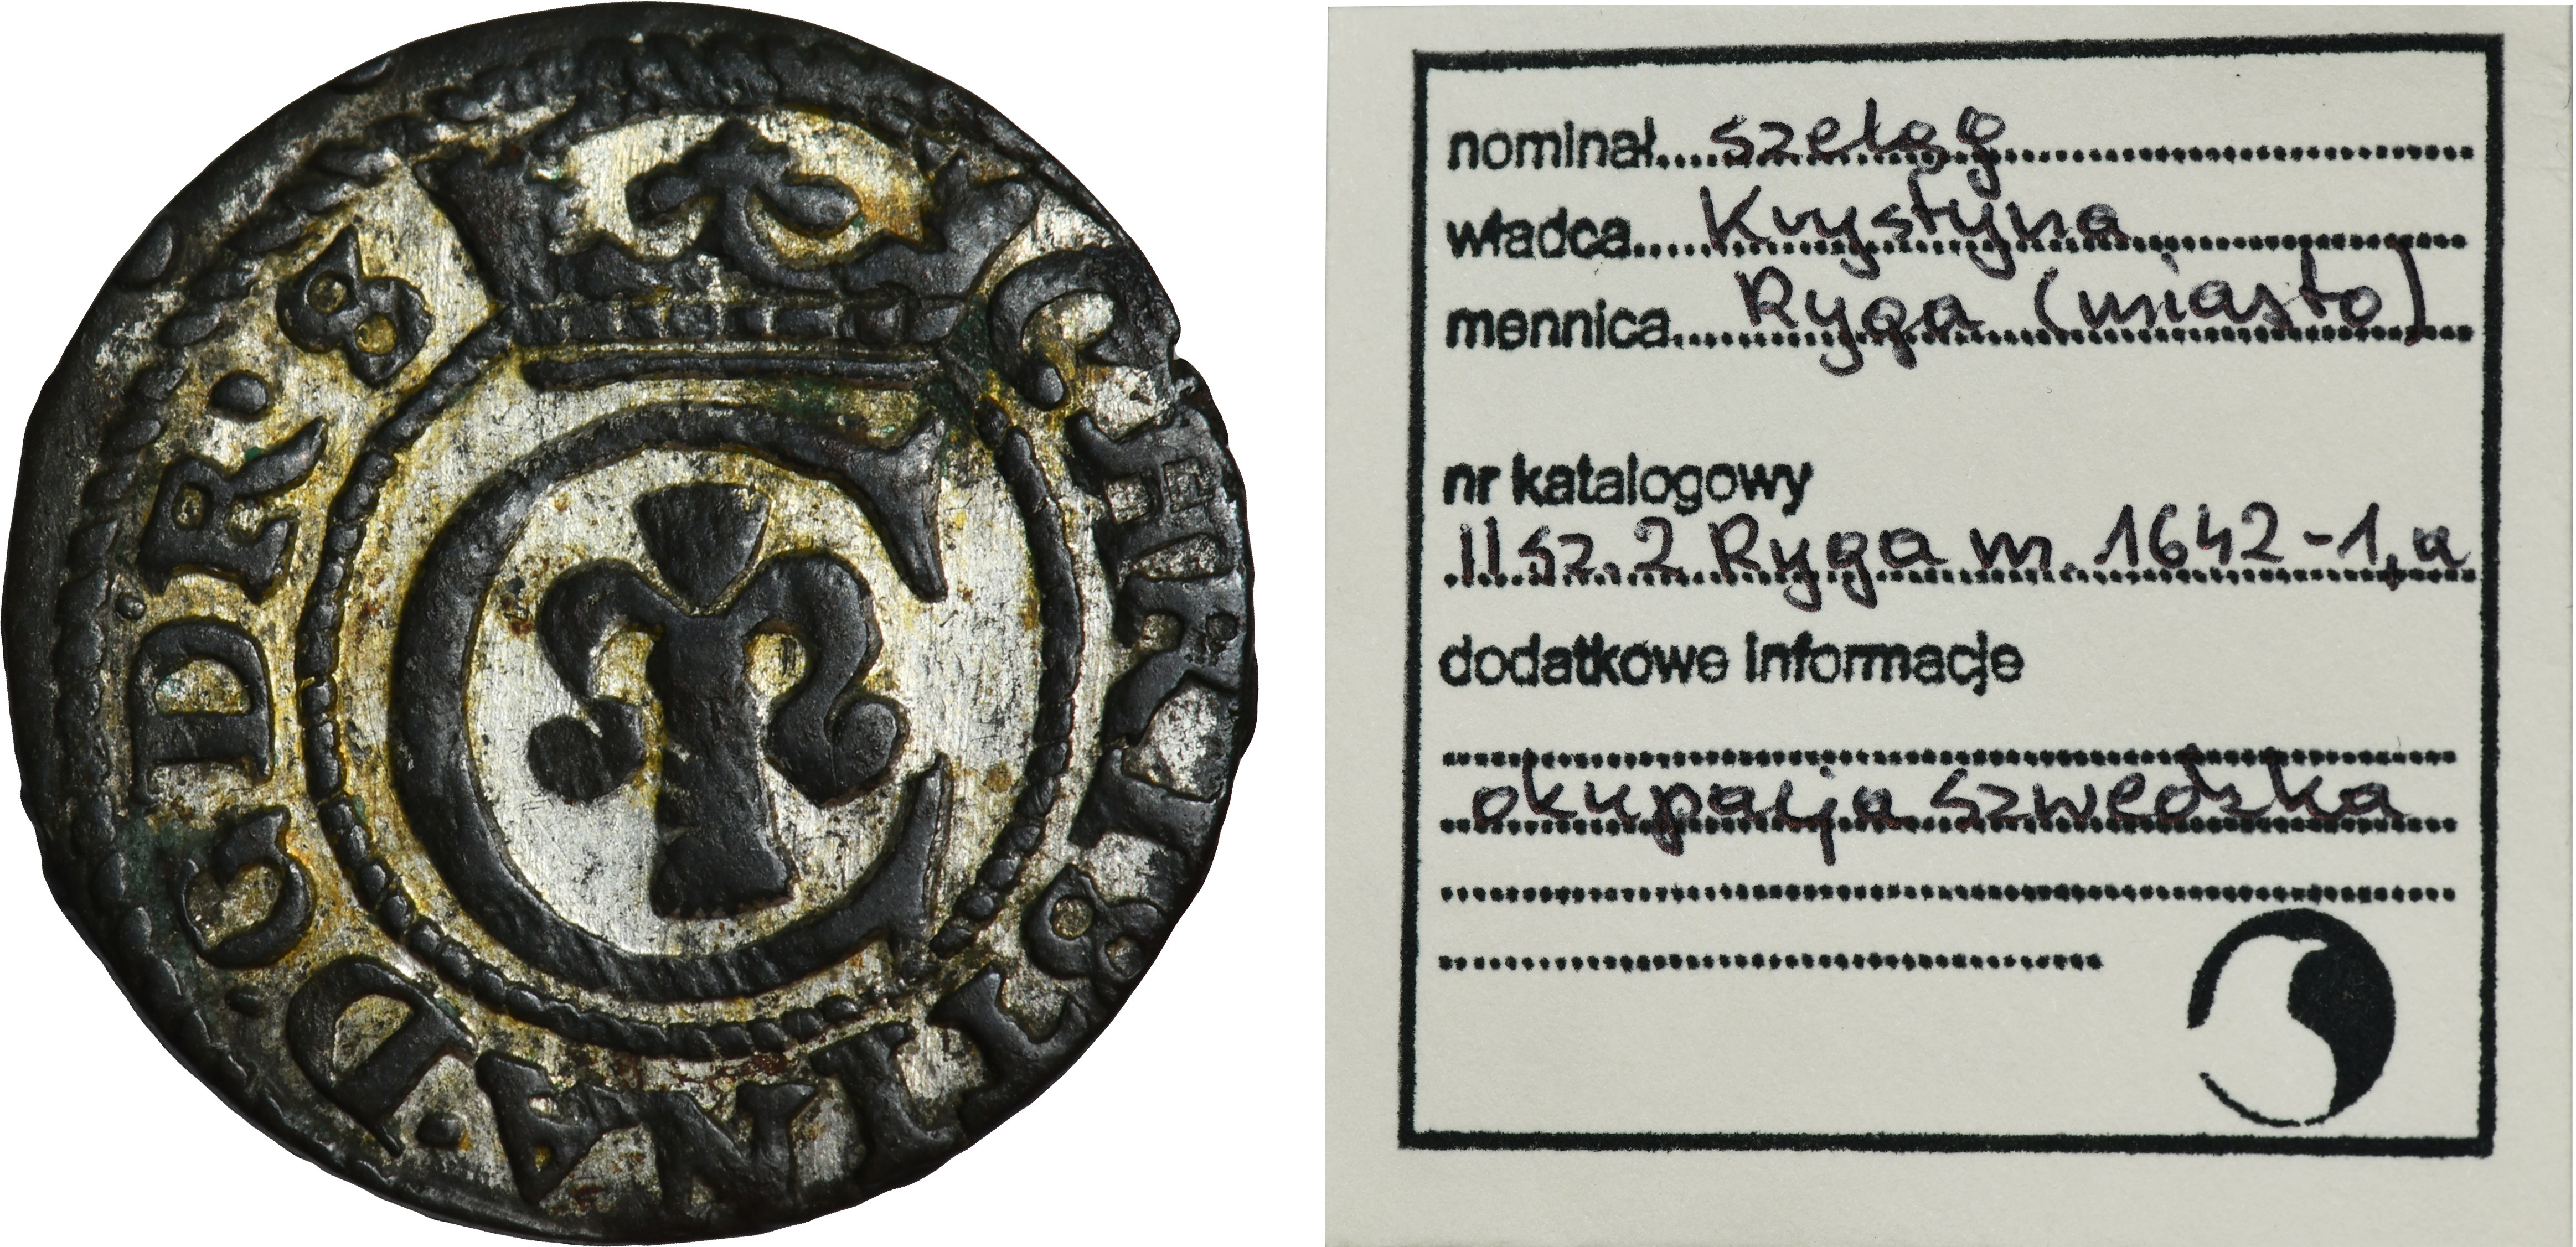 CHRISTINA·D·G·D·R·S
C
nominał....szeląg
władca.....Krystyna
mennica....Ryga (miasto)
nr katalogowy
II sz. 2 Ryga m. 1642-1,a
dodatkowe informacje
okupacja szwedzka